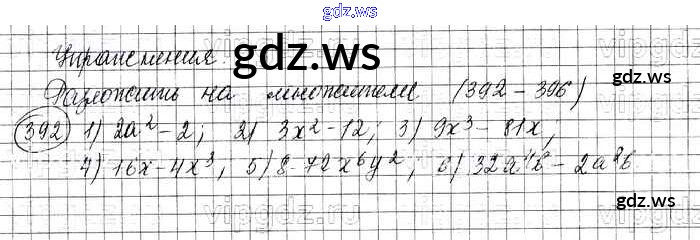 gdz.ws
Упражнения. gdz.ws
Разложить на множители (392 - 396) gdz.ws
392 1) 2a² - 2; 2) 3x² - 12; 3) 9x³ - 81x;
4) 16x - 4x³; 5) 8 - 72x⁶y²; 6) 32a⁴b - 2a⁸b
gdz.ws
vipgdz.ru